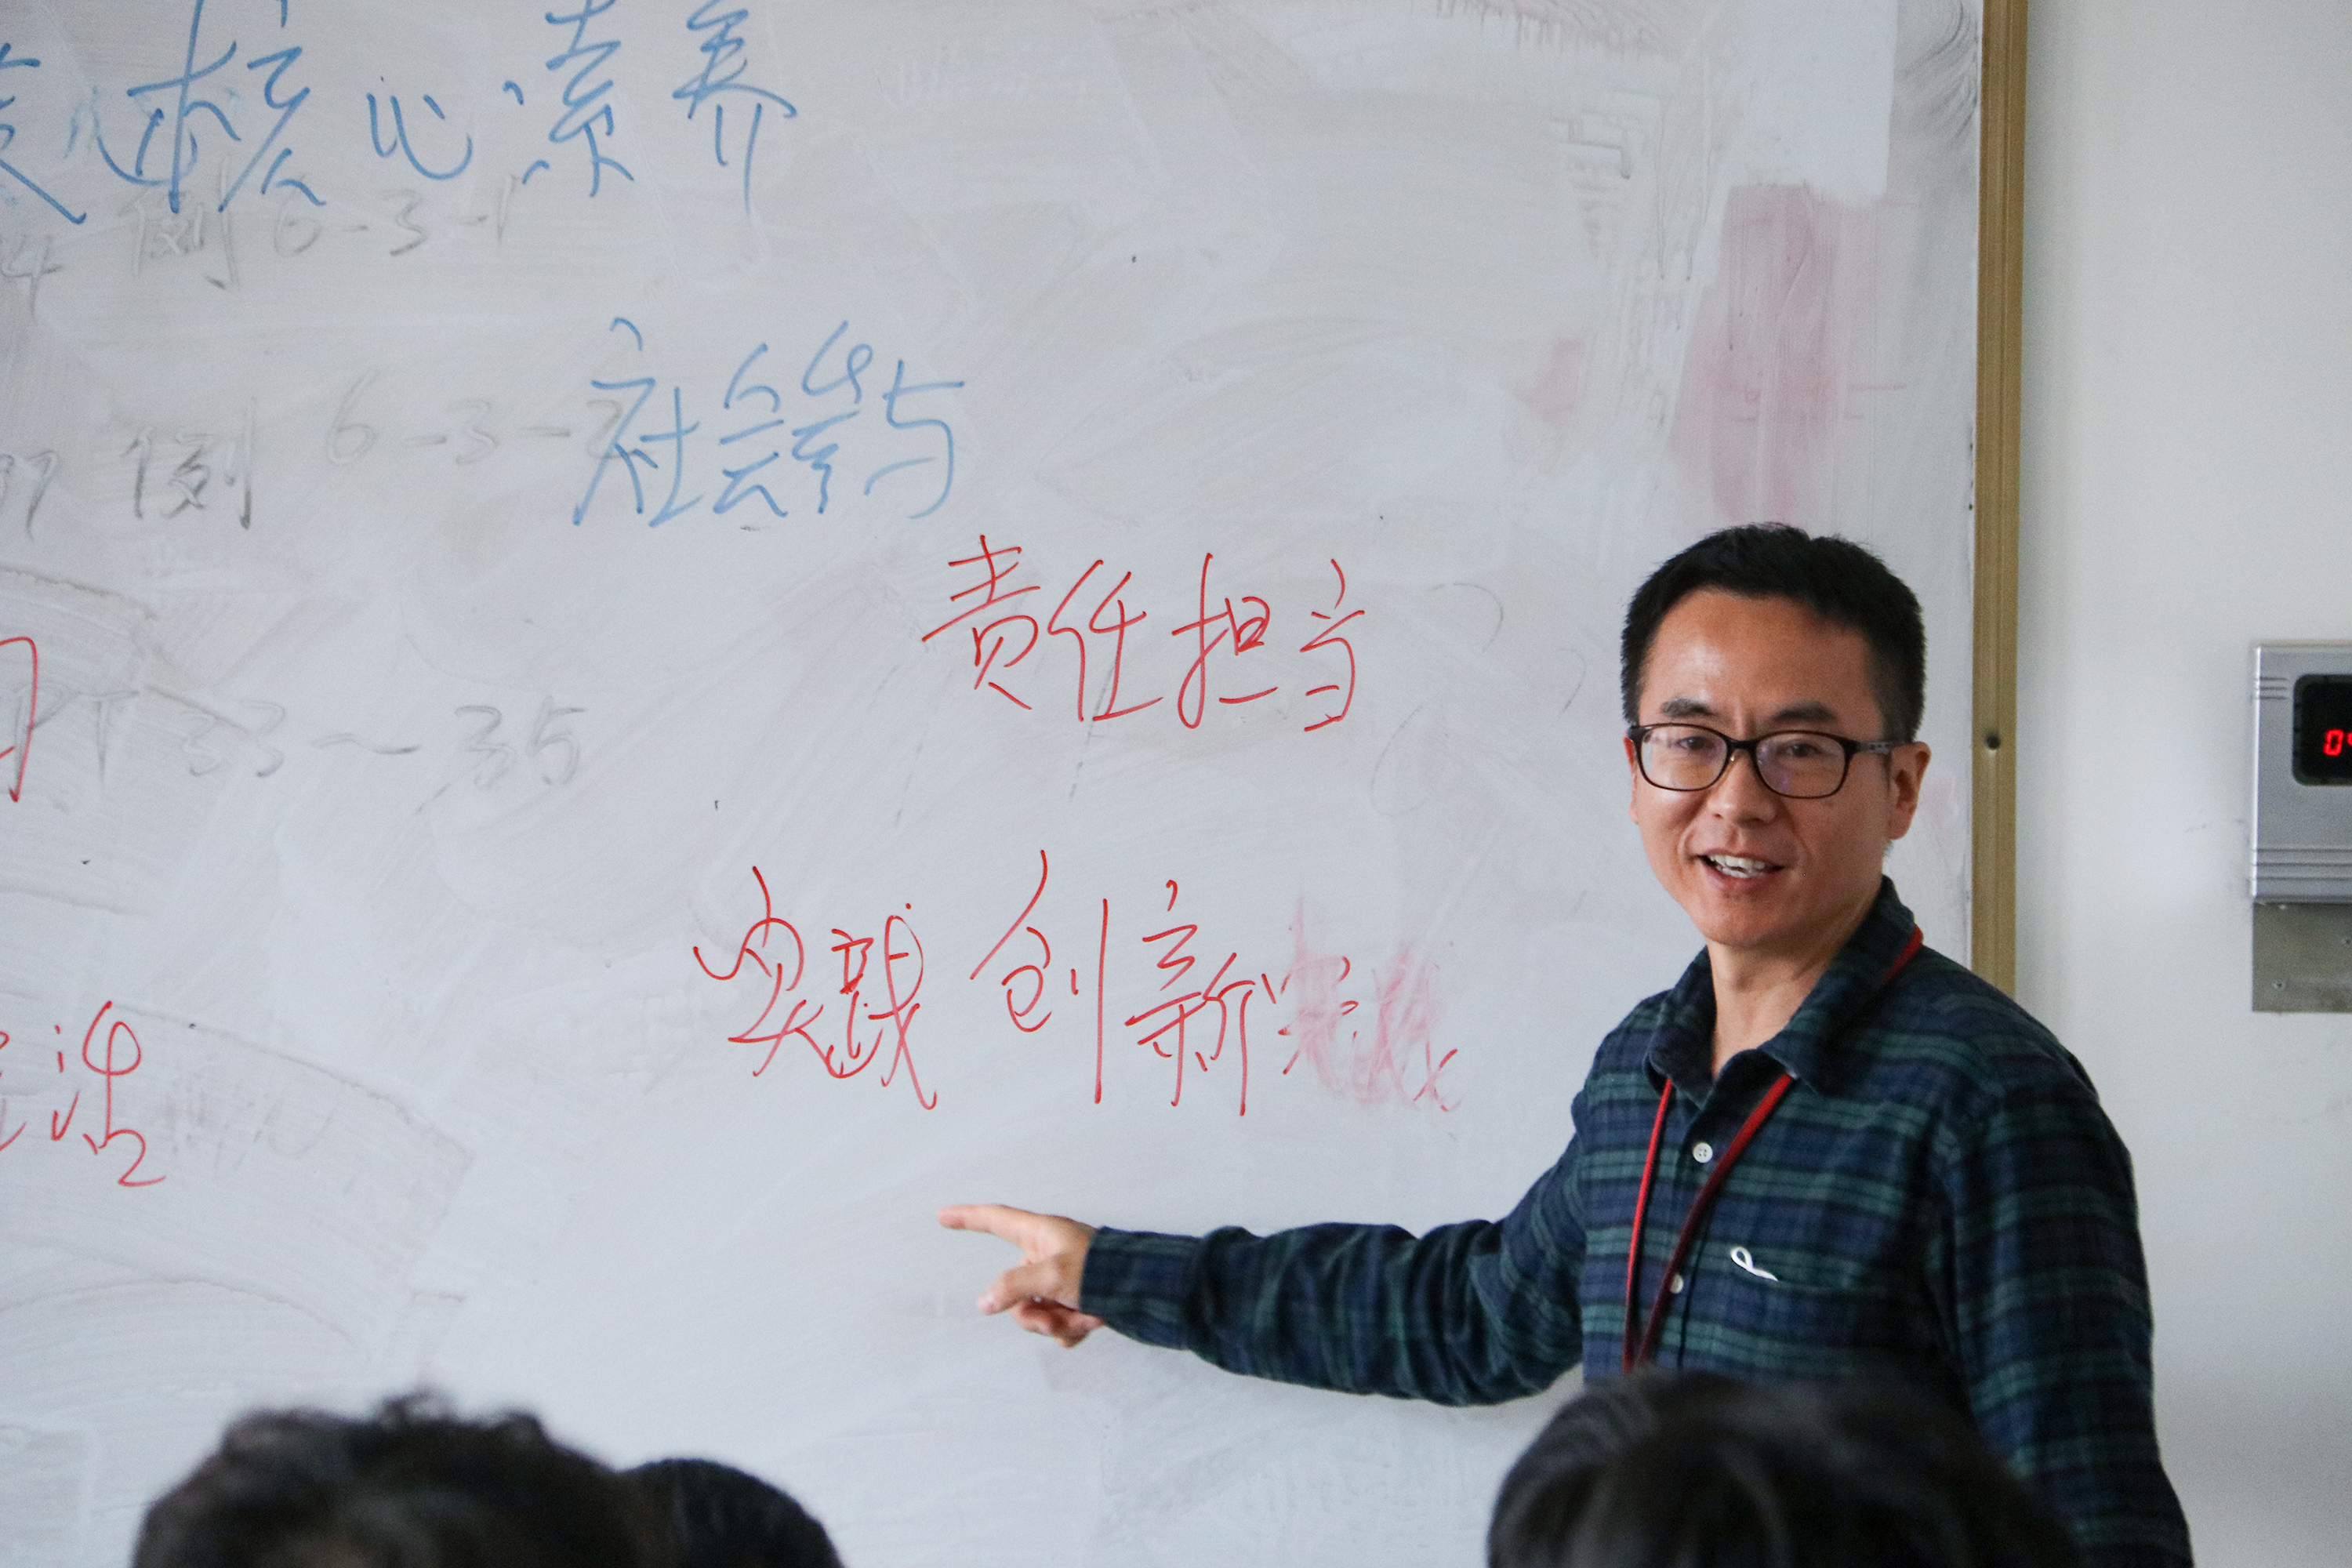 核心素养
例 6-3-1
社会参与
例 6-3-2
责任担当
33~35
实践 创新
活